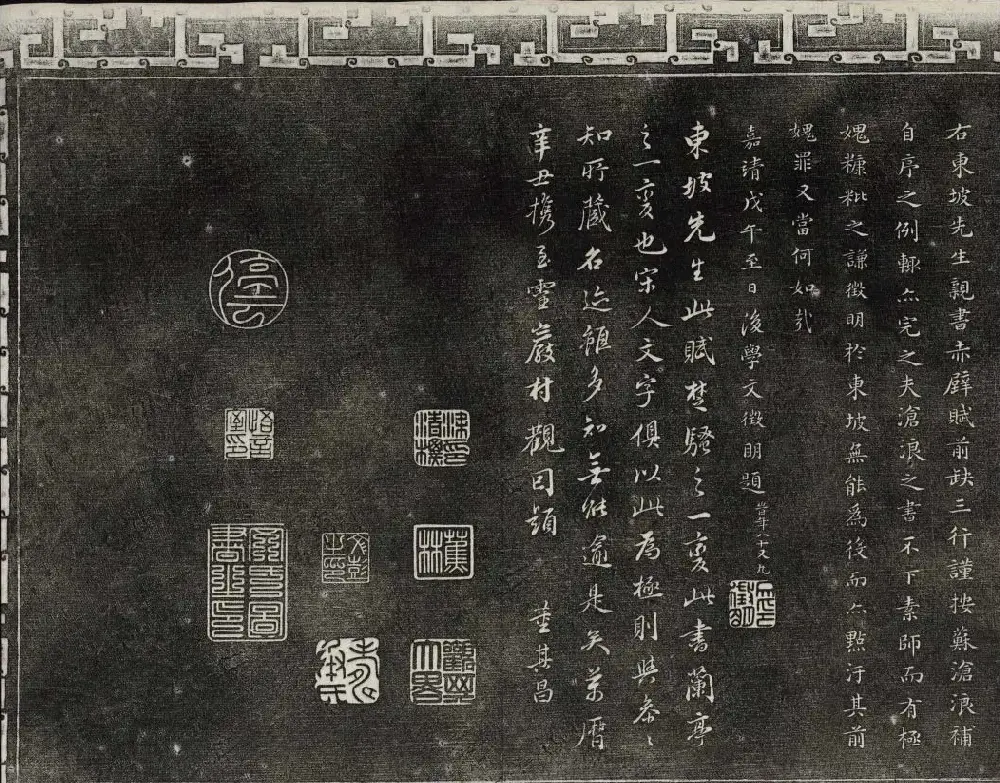 右東坡先生親書赤壁賦前缺三行謹按蘇滄浪補
自序之例輙亦完之夫滄浪之書不下素師而有極
媿糠粃之謙徵明於東坡無能爲後而亦點汙其前
媿罪又當何如哉
嘉靖戊午至日後學文徵明題 時年八十又九
東坡先生此賦楚騷之一變此書蘭亭
之一變也宋人文字俱以此爲極則與參〻
知所藏名迹雖多知無能逾是矣萬曆
辛丑携至靈巖村觀因題 董其昌
停雲
悟言室印
蕉林
文彭之印
觀其大略